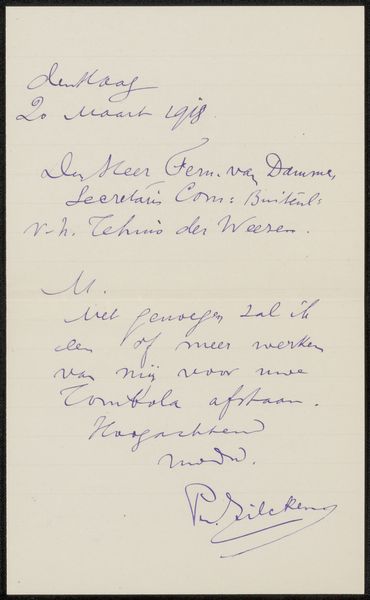 den Haag
20 Maart 1918
Den Heer Fern. van Damme,
Secretaris Com: Buitenl:
v. h. Tehuis der Weezen.
M.
Met genoegen zal ik
een of meer werken
van mij voor uwe
Tombola afstaan.
Hoogachtend
Ph. Zilcken